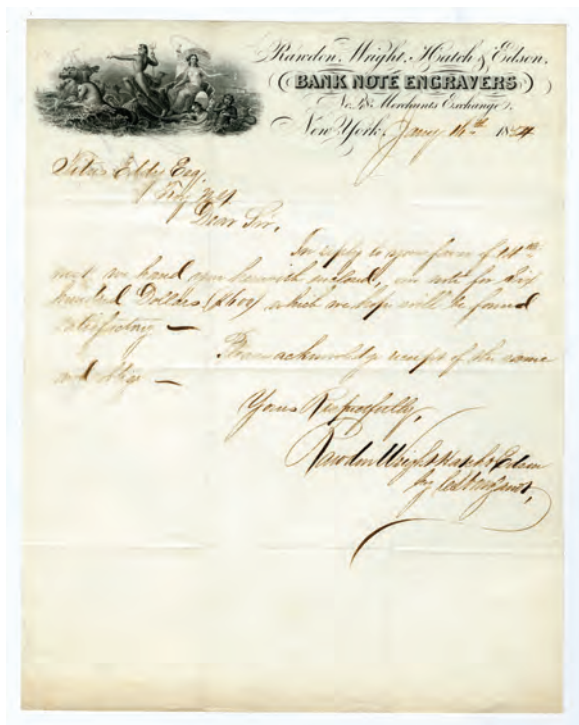 Rawdon, Wright, Hatch & Edson,
BANK NOTE ENGRAVERS
No. 48 Merchants Exchange
New York, Jany 16th 1854
Titus Eddy Esq.
Troy N.Y.
Dear Sir,
In reply to your favor of 14th
inst. we hand you herewith inclosed, our note for Six
hundred Dollars ($600) which we hope will be found
satisfactory —
Please acknowledge receipt of the same
and oblige —
Yours Respectfully,
Rawdon Wright Hatch & Edson
by